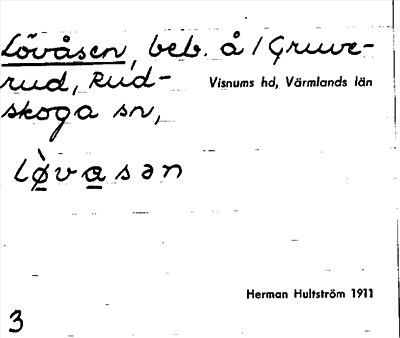 Lövåsen, beb. å/Gruve-
rud, Rud- Visnums hd, Värmlands län
skoga sn,
lø̀vasən
Herman Hultström 1911
3